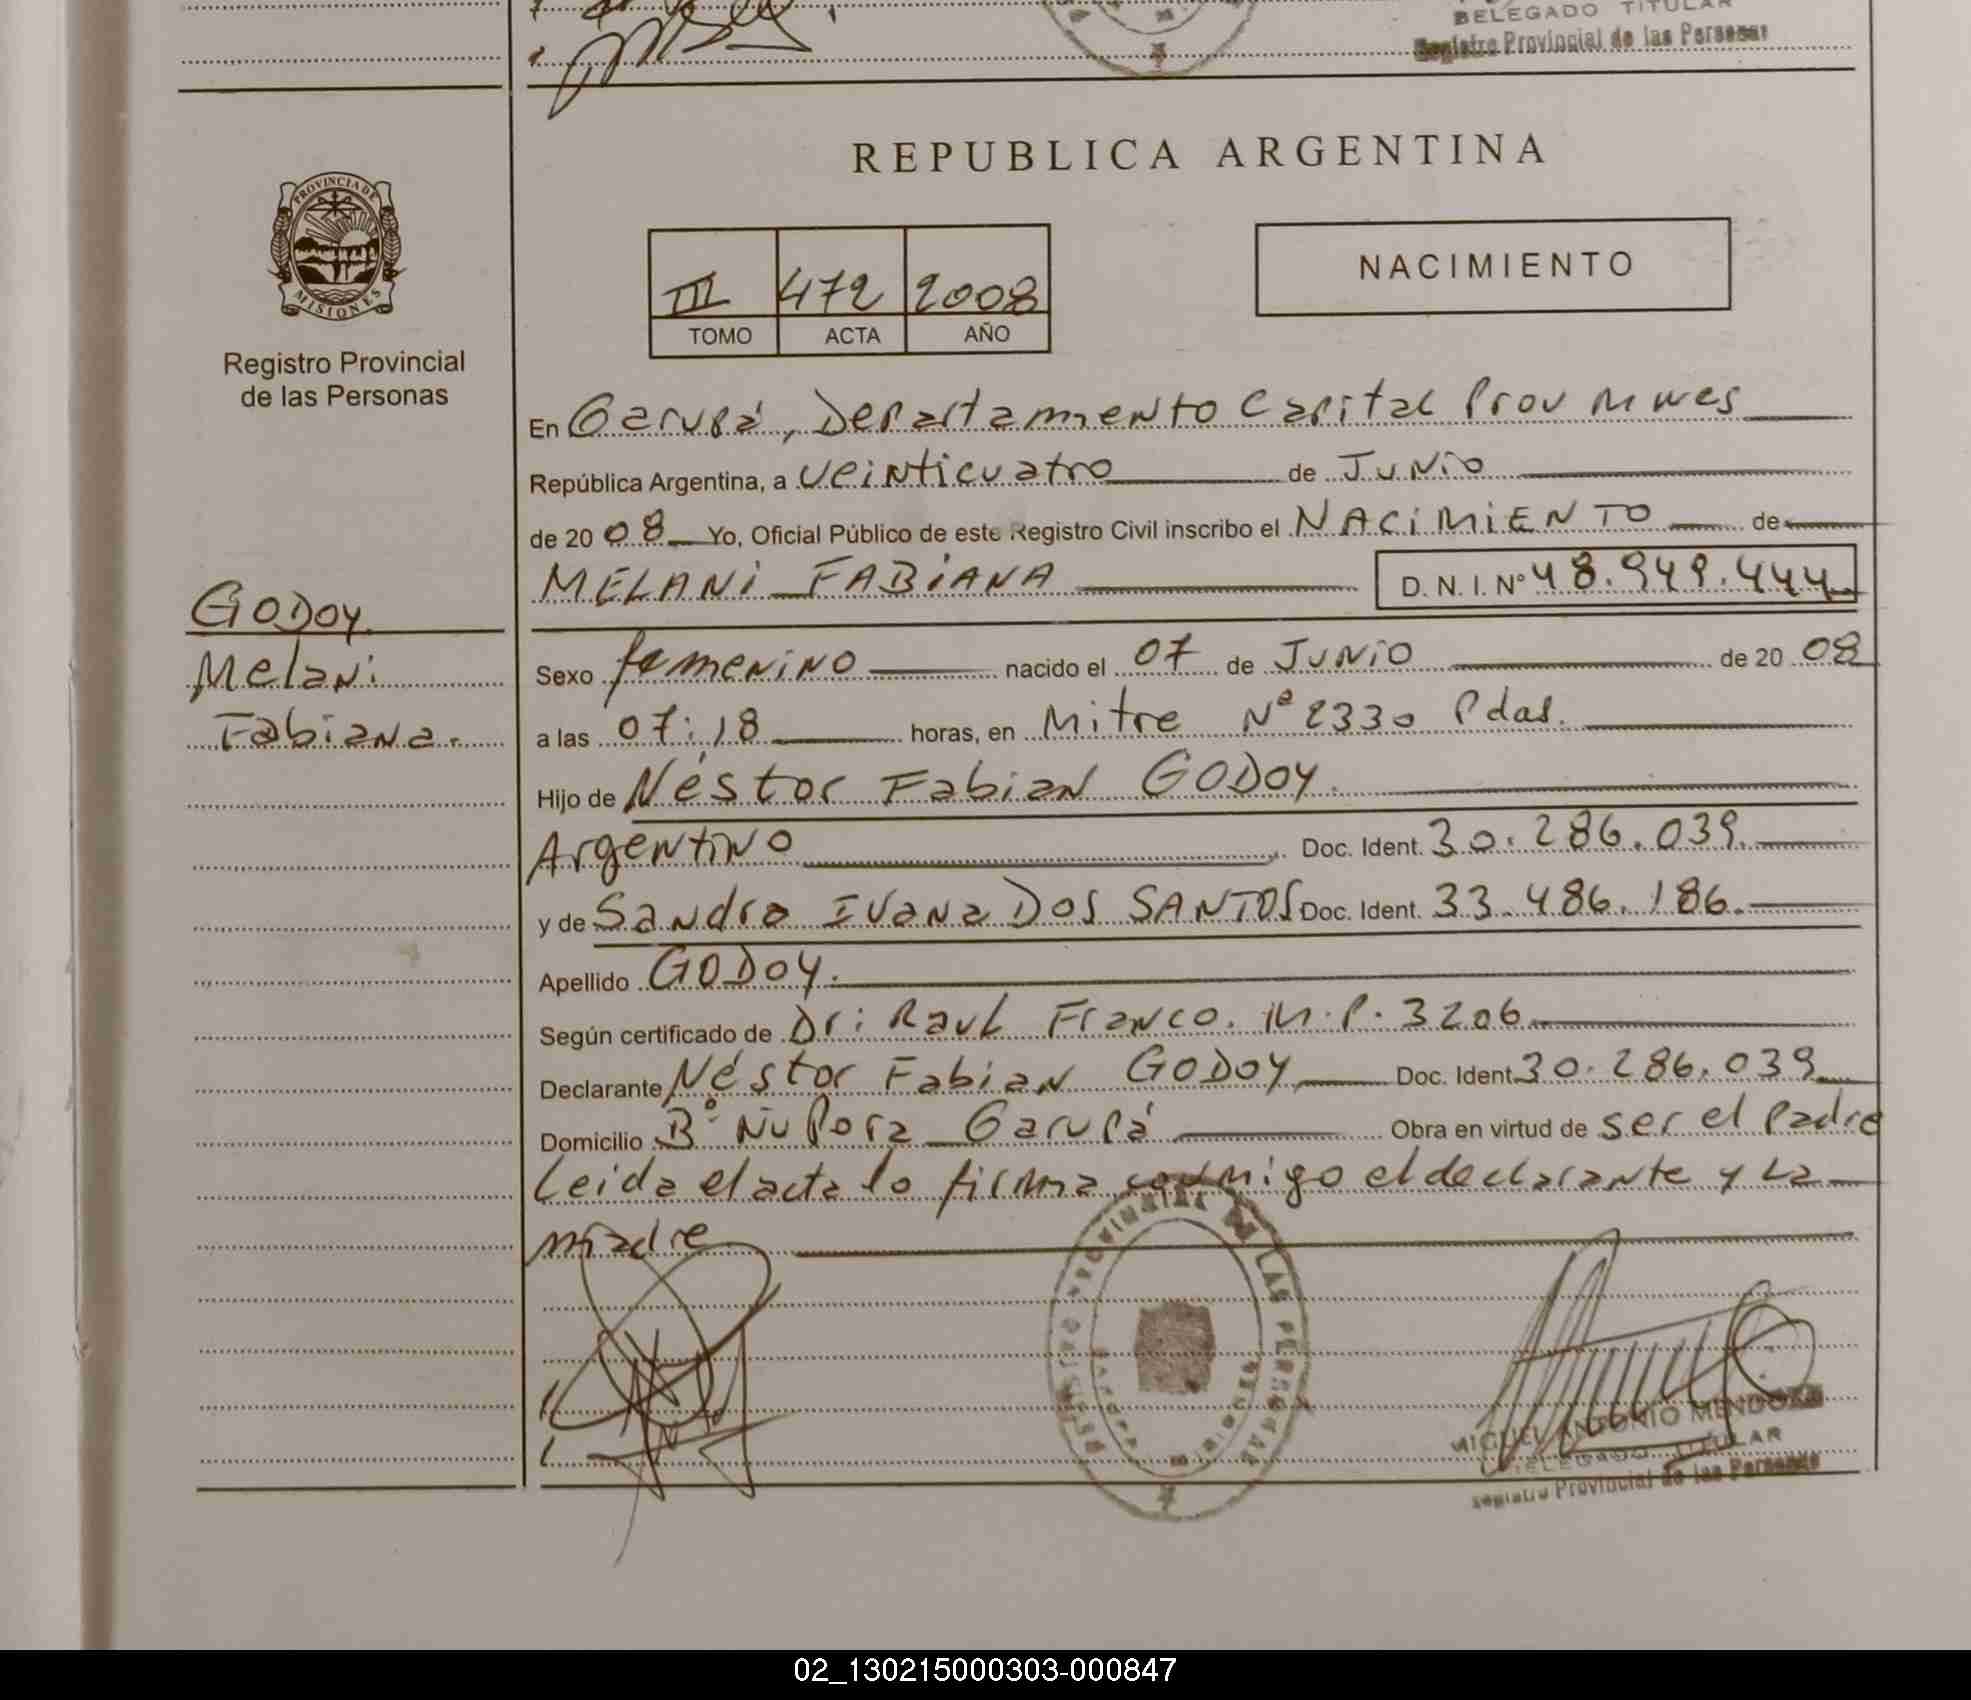 DELEGADO TITULAR
Registro Provincial de las Personas
REPUBLICA ARGENTINA
PROVINCIA DE
MISIONES
Registro Provincial
de las Personas
III 472 2008
TOMO ACTA AÑO
NACIMIENTO
En Garupá, Departamento Capital Prov Mnes
República Argentina, a veinticuatro de Junio
de 20 08 Yo, Oficial Público de este Registro Civil inscribo el NACIMIENTO de
MELANI FABIANA D.N.I. Nº 48.949.444
GODOY
Melani
Fabiana.
Sexo femenino nacido el 07 de Junio de 20 08
a las 07:18 horas, en Mitre Nº 2330 Pdas.
Hijo de Néstor Fabian GODOY.
Argentino Doc. Ident. 30.286.039.
y de Sandra Ivana DOS SANTOS Doc. Ident. 33.486.186.
Apellido GODOY.
Según certificado de Dr: Raul Franco. M.P. 3206
Declarante Néstor Fabian GODOY Doc. Ident 30.286.039
Domicilio Bº Ñu Pora Garupá Obra en virtud de ser el padre
Leida el acta lo firma conmigo el declarante y la
madre
REGISTRO PROVINCIAL DE LAS PERSONAS
GARUPA
MISIONES
MIGUEL ANTONIO MENDOZA
DELEGADO TITULAR
Registro Provincial de las Personas
02_130215000303-000847